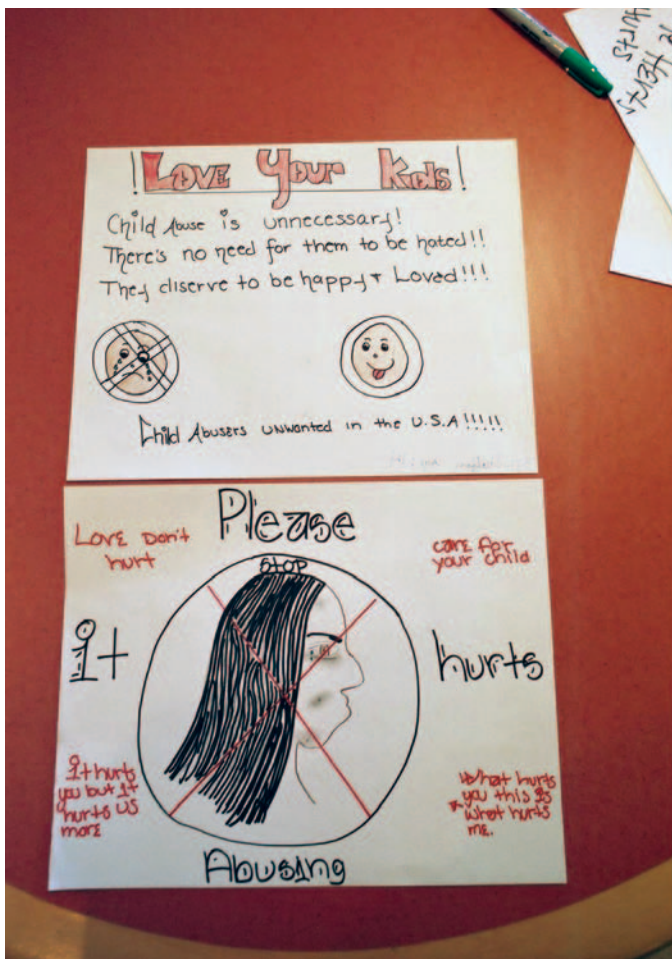 !LOVE YOUR KIDS!
Child Abuse is unnecessary!
There's no need for them to be hated!!
They diserve to be happy + Loved!!!
Child Abusers unwanted in the U.S.A!!!!!
Please
Love Don't
hurt
care for
your child
STOP
it
hurts
it hurts
you but it
hurts us
more
what hurts
you this is
what hurts
me.
Abusing
Hurts